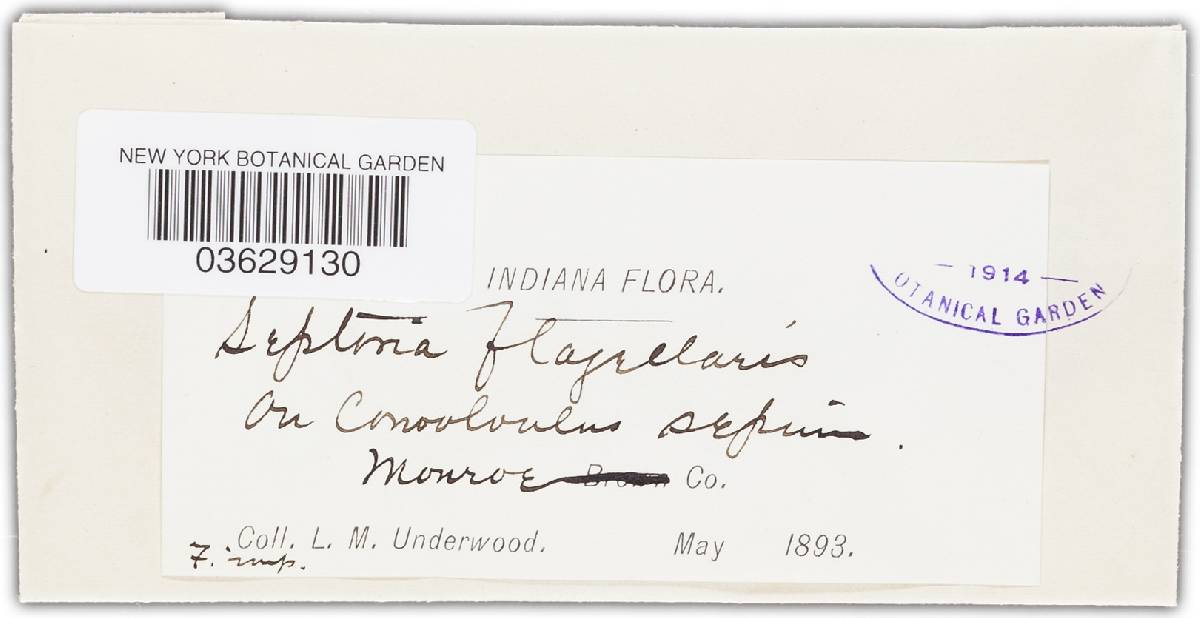 NEW YORK BOTANICAL GARDEN
03629130
INDIANA FLORA.
— 1914 —
OTANICAL GARDEN
Septoria flagellaris
On Convolvulus sepium.
Monroe Brown Co.
Coll. L. M. Underwood. May 1893.
F. imp.